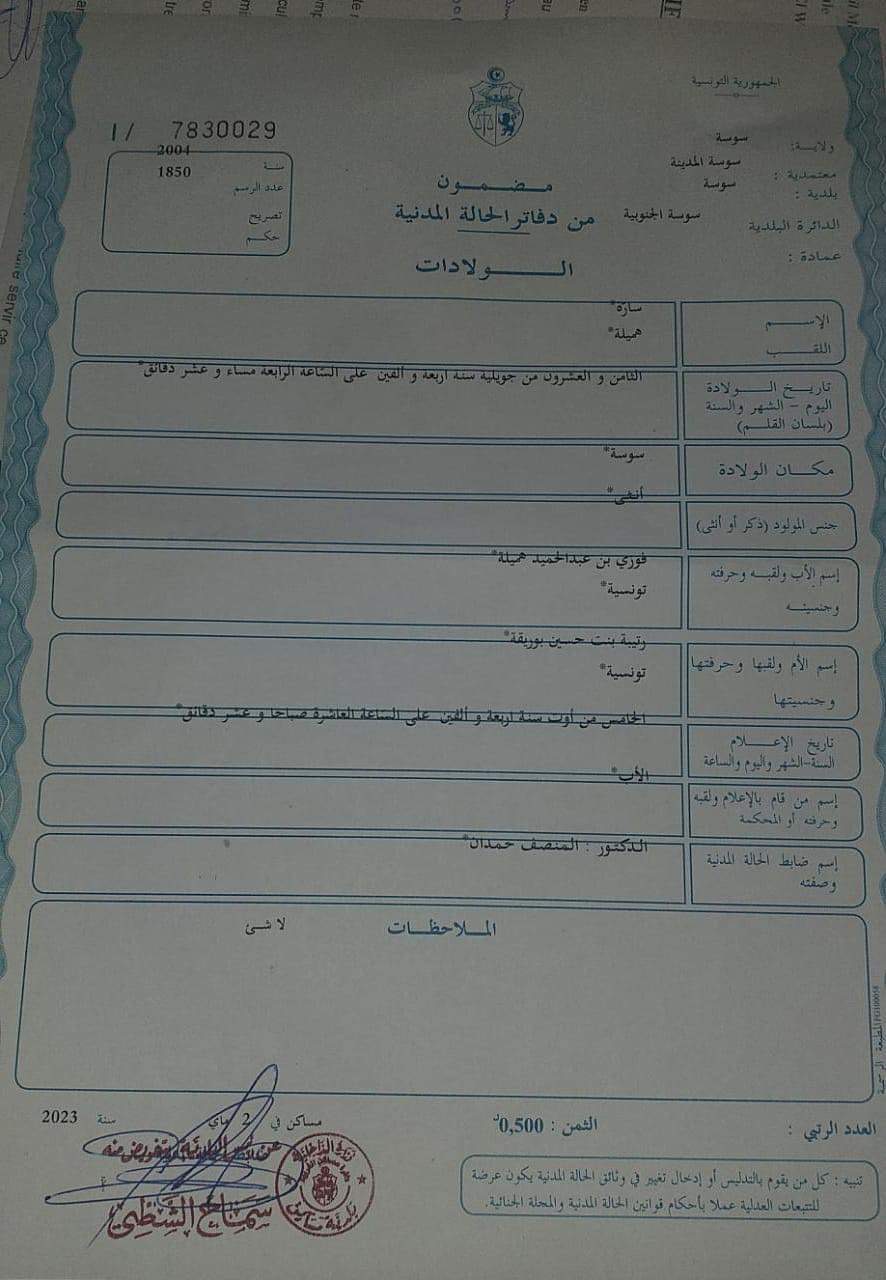 الجمهورية التونسية
ولاية: سوسة
معتمدية : سوسة المدينة
بلدية : سوسة
الدائرة البلدية سوسة الجنوبية
عمادة :
I/ 7830029
سنة 2004
عدد الرسم 1850
تصريح
حكم
مضمون
من دفاتر الحالة المدنية
الولادات
الإسم سارة*
اللقب هميلة*
تاريخ الولادة
اليوم - الشهر والسنة
(بلسان القلم)
الثامن و العشرون من جويلية سنة اربعة و ألفين على الساعة الرابعة مساء و عشر دقائق*
مكان الولادة سوسة*
جنس المولود (ذكر أو أنثى) أنثى*
إسم الأب ولقبه وحرفته فوزي بن عبدالحميد هميلة*
وجنسيته تونسية*
إسم الأم ولقبها وحرفتها رتيبة بنت حسين بوريقة*
وجنسيتها تونسية*
تاريخ الإعلام
السنة-الشهر واليوم والساعة
الخامس من أوت سنة اربعة و ألفين على الساعة العاشرة صباحا و عشر دقائق*
إسم من قام بالإعلام ولقبه
وحرفته أو المحكمة
الأب*
إسم ضابط الحالة المدنية
وصفته
الدكتور : المنصف حمدان*
الملاحظات
لا شئ
العدد الرتبي :
الثمن : 0,500د
مساكن في 2 ماي سنة 2023
سماح الشطي
تنبيه : كل من يقوم بالتدليس أو إدخال تغيير في وثائق الحالة المدنية يكون عرضة
للتتبعات العدلية عملا بأحكام قوانين الحالة المدنية والمجلة الجنائية.
المطبعة الرسمية